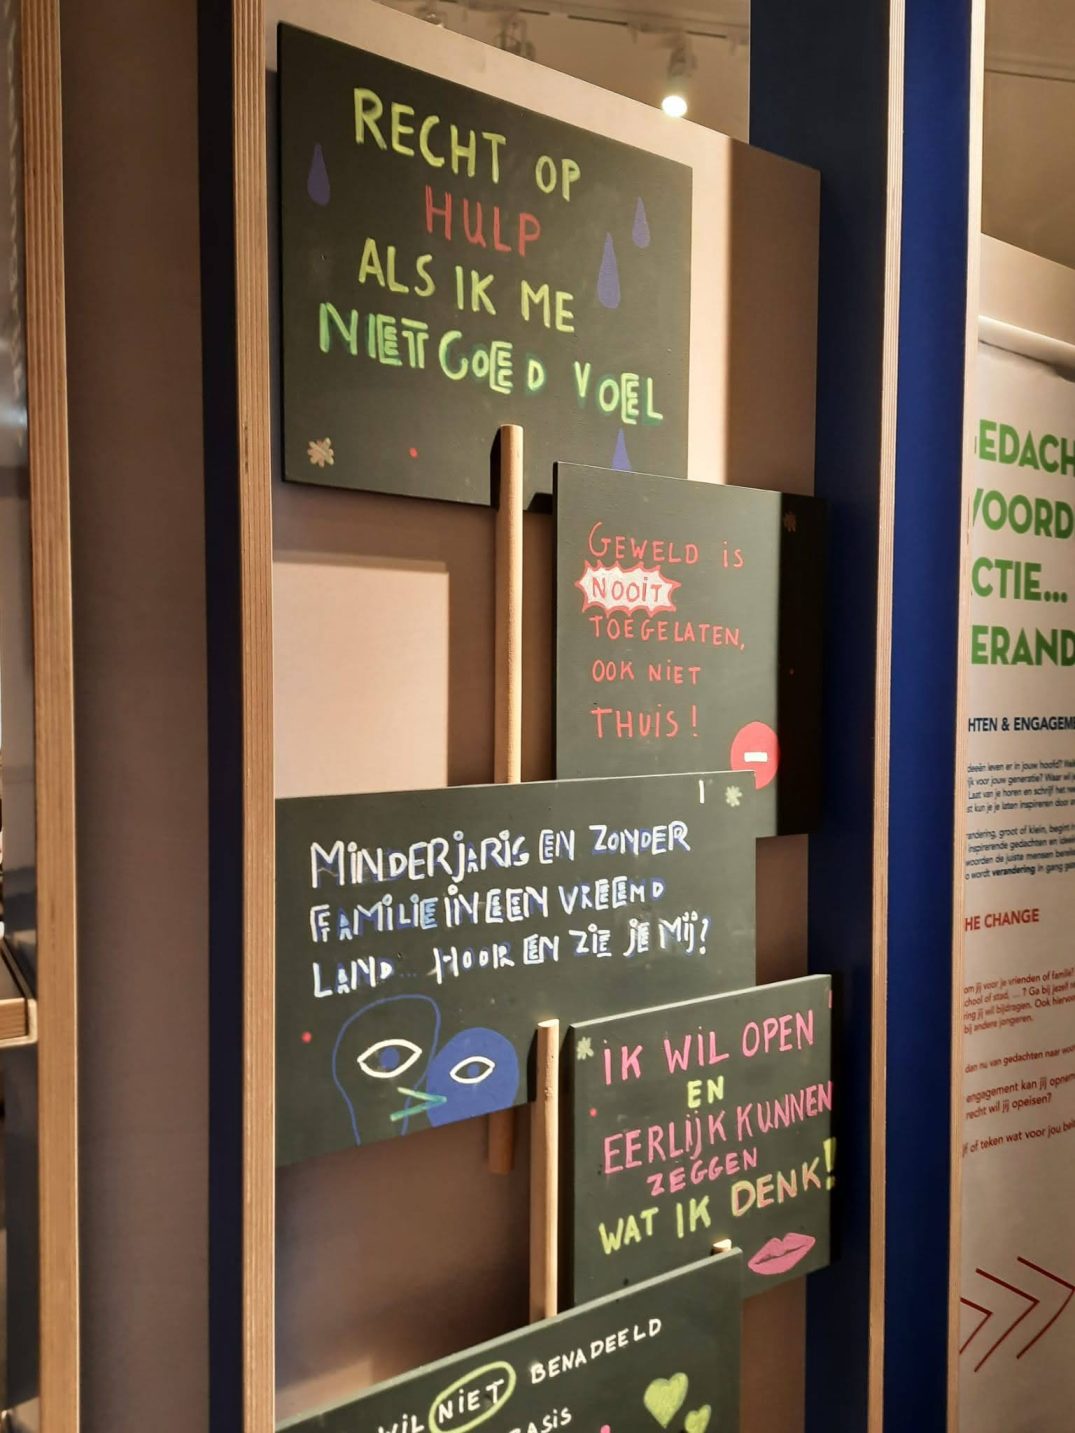 RECHT OP
HULP
ALS IK ME
NIET GOED VOEL
GEWELD is
NOOiT
TOEGELATEN,
OOK NiET
THUiS!
MiNDERjARiG EN ZONDER
FAMiLiE iN EEN VREEMD
LAND... HOOR EN ZiE jE Mij?
iK WiL OPEN
EN
EERLijK KUNNEN
ZEGGEN
WAT iK DENK!
WiL NiET BENADEELD
BASiS
EDACH
VOORD
CTIE...
ERAND
HTEN & ENGAGEME
deeën leven er in jouw hoofd?
jk voor jouw generatie? Waar wil je
Laat van je horen en schrijf het
st kun je je laten inspireren door
andering, groot of klein, begint
inspirerende gedachten en
woorden de juiste mensen
o wordt verandering in gang
HE CHANGE
om jij voor je vrienden of familie?
chool of stad, ... ? Ga bij jezelf
ring jij wil bijdragen. Ook
bij andere jongeren.
dan nu van gedachten naar
engagement kan jij
recht wil jij opeisen?
f of teken wat voor jou